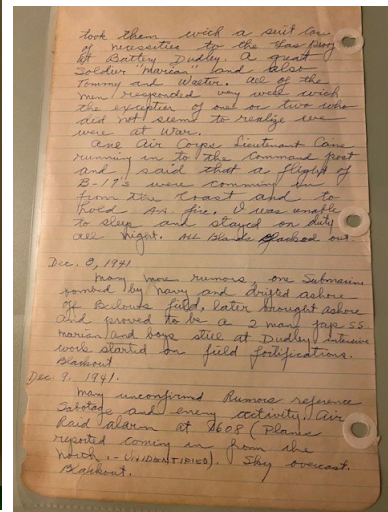 took them with a suit case
of necessities to the Gas proof
At Battery Dudley. A great
Soldier "Marian" and also
Tommy and Walter. All of the
men responded very well with
the exception of one or two who
did not seem to realize we
were at War.
One Air Corps Lieutenant Came
running in to the Command post
and said that a flight of
B-17's were comming in
from the Coast and to
hold fire. I was unable
to sleep and stayed on duty
all night. All Islands Blacked out.
Dec. 8, 1941
Many more rumors, one Submarine
bombed by Navy and drifted ashore
off Bellows field, later brought ashore
and proved to be a 2 man Jap SS.
Marian and boys still at Dudley intensive
work started on field fortifications.
Blackout
Dec. 9, 1941.
Many unconfirmed Rumors reference
Sabotage and enemy activity. Air
Raid alarm at 0608 (Planes
reported coming in from the
North. - UNIDENTIFIED). Sky overcast.
Blackout.